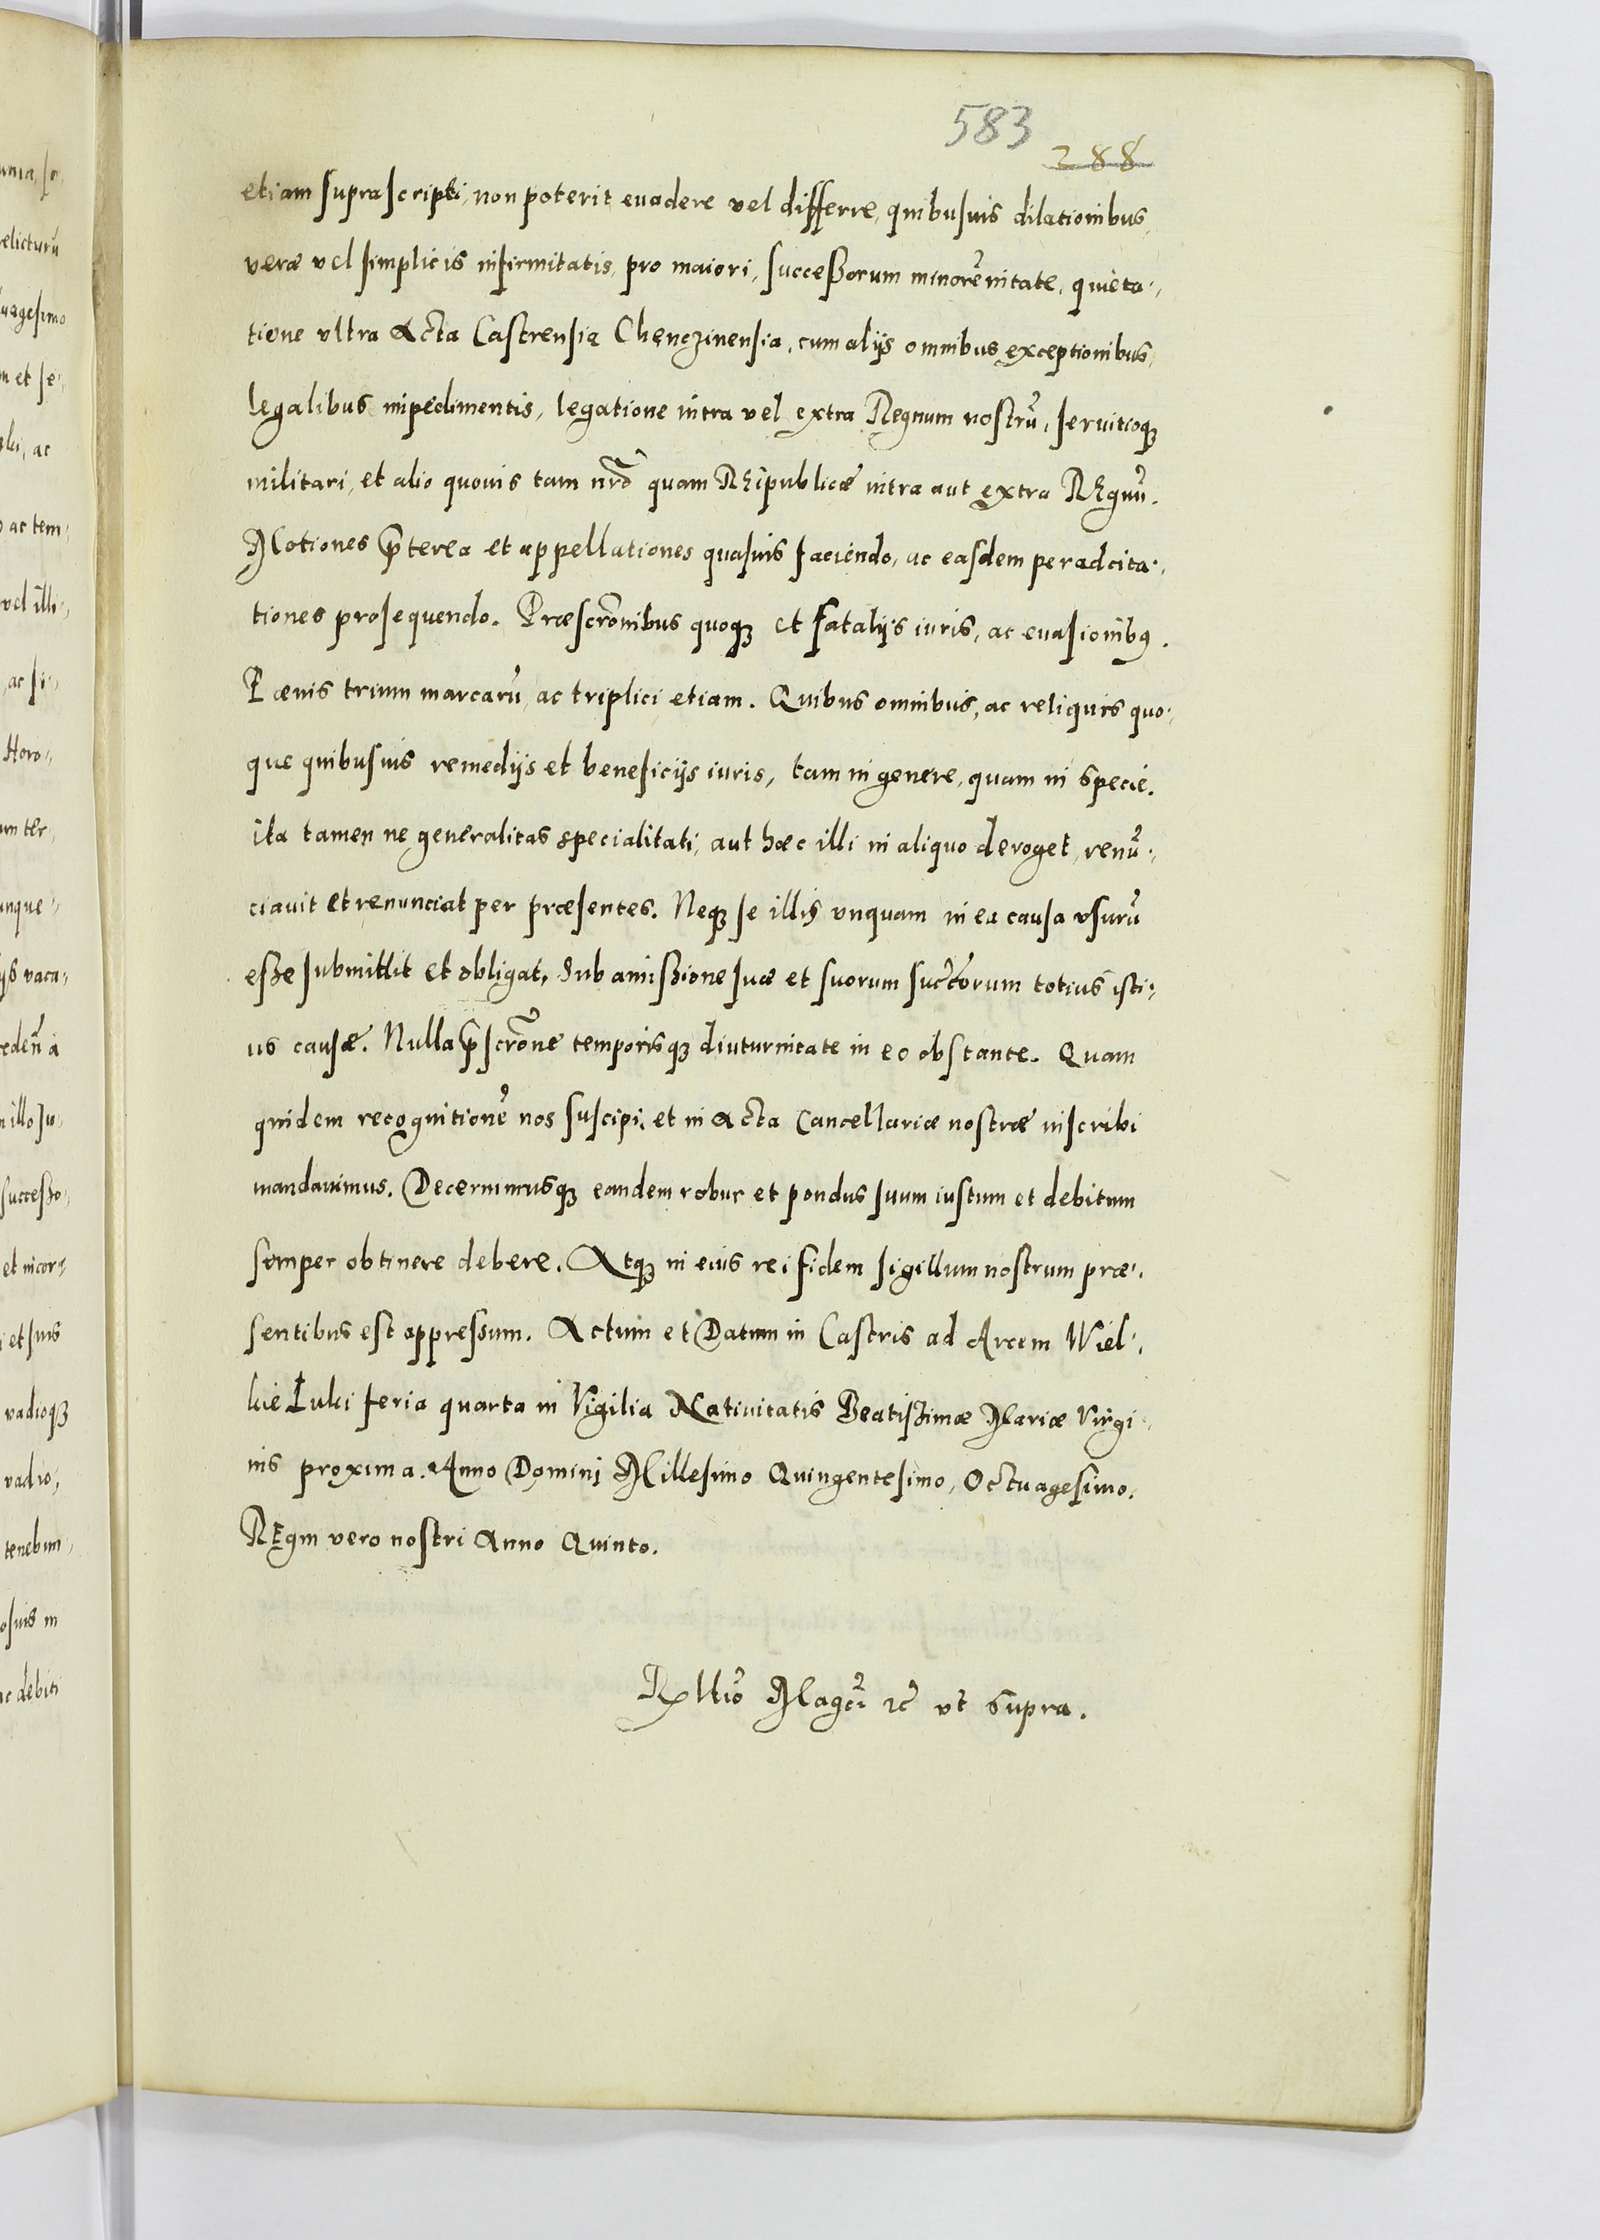 583
288
etiam suprascripti, non poterit euadere vel differre, quibusuis dilationibus,
veræ vel simplicis infirmitatis, pro maiori, successorum minorẽnitate, quieta-
tione vltra Acta Castrensia Chenczinensia, cum alijs omnibus exceptionibus,
legalibus impedimentis, legatione intra vel extra Regnum nostrũ, seruitioqꝫ
militari, et alio quouis tam nrõ quam Reipublicæ intra aut extra Regnũ.
Motiones p̃terea et appellationes quasuis faciendo, ac easdem per adcita-
tiones prosequendo. Præscrõnibus quoqꝫ et fatalijs iuris, ac euasionibꝰ.
Pænis trium marcarũ, ac triplici etiam. Quibus omnibus, ac reliquis quo-
que quibusuis remedijs et beneficijs iuris, tam in genere, quam in specie.
ita tamen ne generalitas specialitati, aut hæc illi in aliquo deroget, renũ-
ciauit et renunciat per præsentes. Neqꝫ se illis vnquam in ea causa vsurũ
esse submittit et obligat, sub amissione suæ et suorum succ̃torum totius isti-
us causæ. Nulla p̃scrõne temporisqꝫ diuturnitate in eo obstante. Quam
quidem recognitionẽ nos suscipi, et in Acta Cancellariæ nostræ inscribi
mandauimus. Decernimusqꝫ eandem robur et pondus suum iustum et debitum
semper obtinere debere. Atqꝫ in eius rei fidem sigillum nostrum præ-
sentibus est appressum. Actum et Datum in Castris ad Arcem Wiel-
kie Luki feria quarta in Vigilia Natiuitatis Beatissimæ Mariæ Virgi-
nis proxima. Anno Domini Millesimo Quingentesimo, Octuagesimo.
Regni vero nostri Anno Quinto.
Rllio Magci ꝛc̃ vt supra.